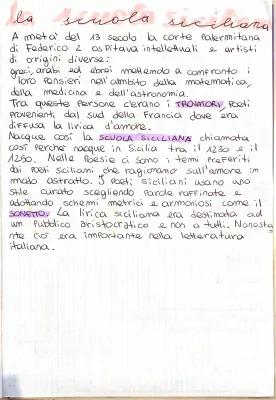 la scuola siciliana
A metà del 13 secolo la corte palermitana
di Federico 2 ospitava intellettuali e artisti
di origini diverse:
greci, arabi ed ebrei mettendo a confronto i
loro pensieri nell'ambito della matematica,
della medicina e dell'astronomia.
Tra queste persone c'erano i TROVATORI, poeti
provenienti dal sud della Francia dove era
diffusa la lirica d'amore.
Nacque così la SCUOLA SICILIANA chiamata
così perché nacque in Sicilia tra il 1230 e il
1250. Nelle Poesie ci sono i temi preferiti
dai poeti siciliani che ragionano sull'amore in
modo astratto. I poeti siciliani usano uno
stile curato scegliendo parole raffinate e
adottando schemi metrici e armoniosi come il
SONETTO. La lirica siciliana era destinata ad
un pubblico aristocratico e non a tutti. Nonosta
nte ciò era importante nella letteratura
italiana.